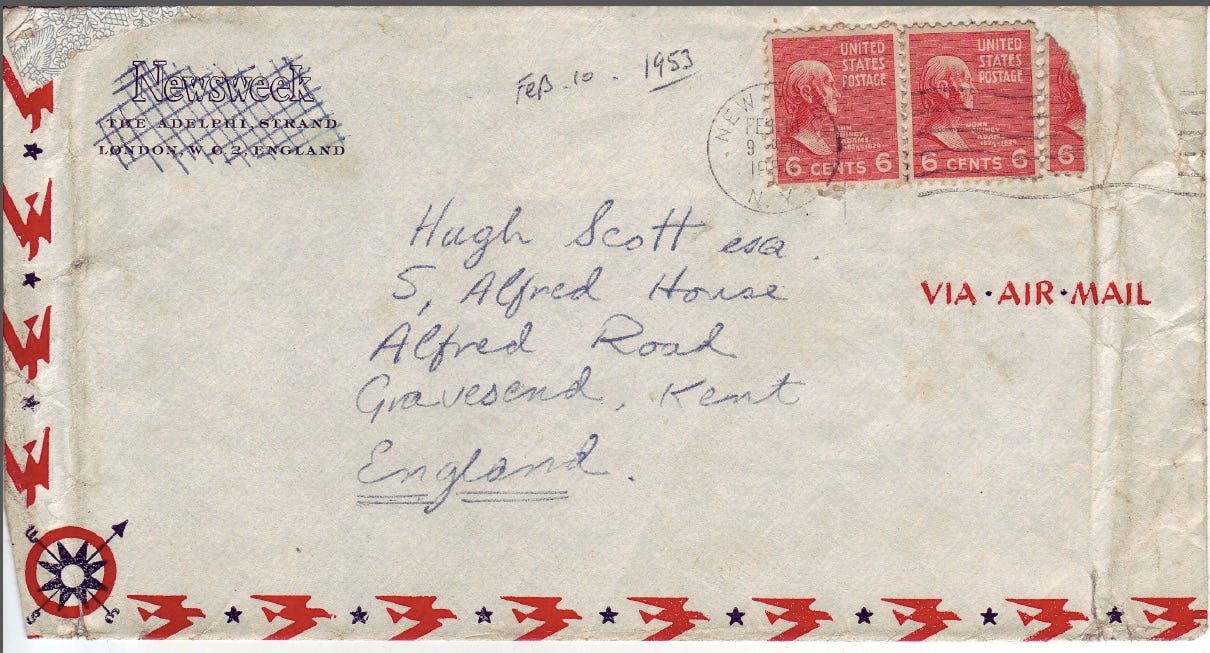 Newsweek
THE ADELPHI, STRAND
LONDON, W.C.2, ENGLAND
Feb. 10 - 1953
UNITED
STATES
POSTAGE
JOHN
QUINCY
ADAMS
6 CENTS 6
UNITED
STATES
POSTAGE
JOHN
QUINCY
ADAMS
6 CENTS 6
6
NEW
FEB
9
N.Y.
Hugh Scott esq.
5, Alfred House
Alfred Road
Gravesend, Kent
England.
VIA·AIR·MAIL
E
S
S